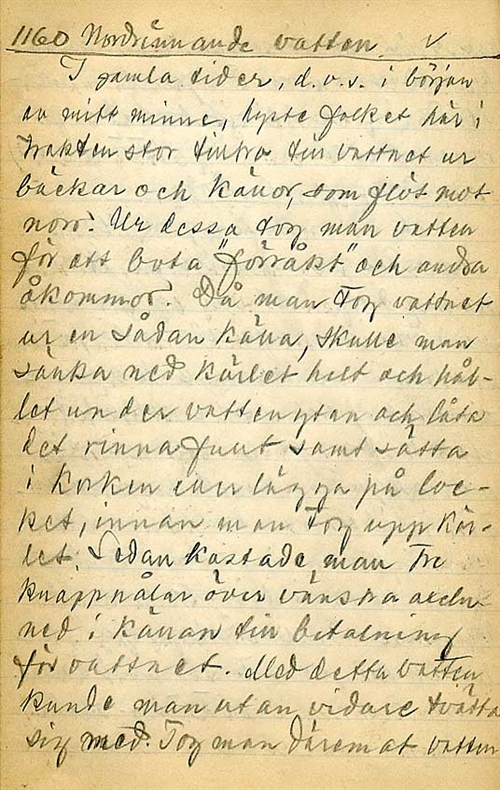 1160 Nordrinnande vatten. v
I gamla tider, d.v.s. i början
av mitt minne, hyste folket här i
trakten stor tilltro till vattnet ur
bäckar och källor, som flöt mot
norr. Ur dessa tog man vatten
för att bota "förråkt" och andra
åkommor. Då man tog vattnet
ur en sådan källa, skulle man
sänka ned kärlet helt och hål-
let under vattenytan och låta
det rinna fullt samt sätta
i korken eller lägga på loc-
ket, innan man tog upp kär-
let. Sedan kastade man tre
knappnålar över vänstra axeln
ned i källan till betalning
för vattnet. Med detta vatten
kunde man utan vidare tvätta
sig med. Tog man däremot vatten